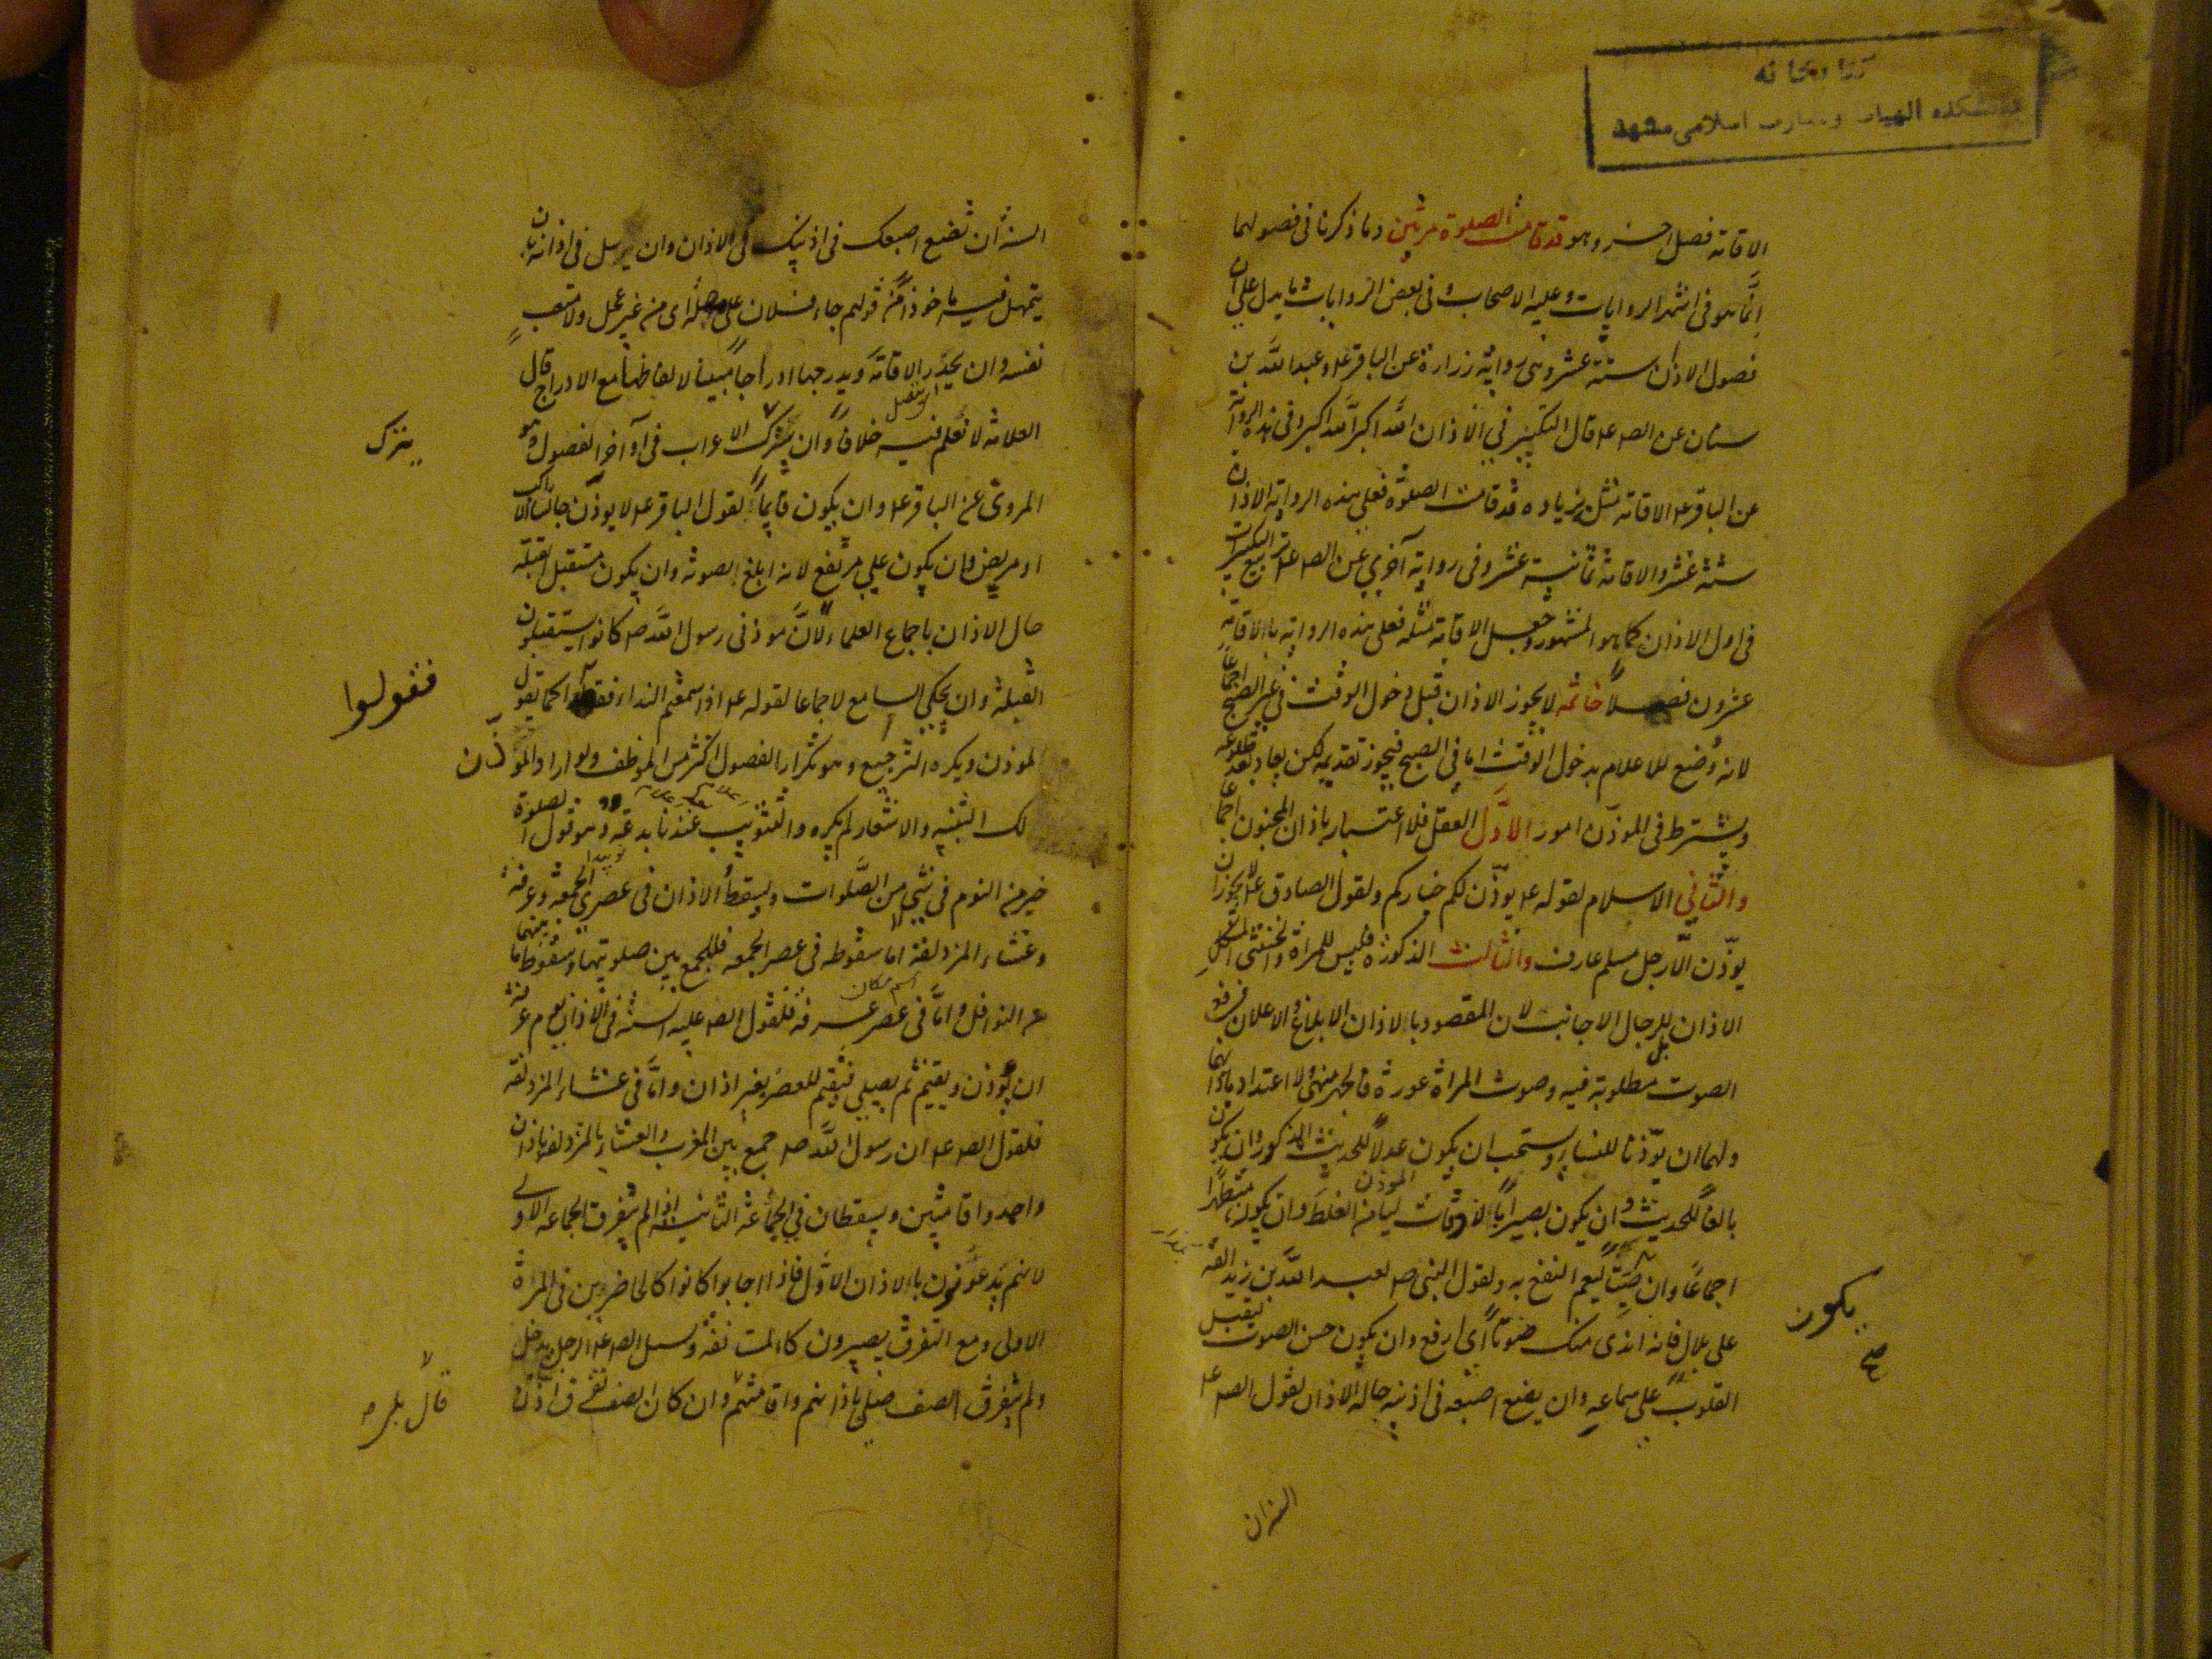 كتابخانه
دانشكده الهيات و معارف اسلامى مشهد
الاقامة فصل اخر وهو قد قامت الصلوة مرتين وما ذكرنا فى فصولهما
انّما هو فى اشهر الروايات وعليه الاصحاب وفى بعض الروايات ما يدل على ان
فصول الاذان ستة عشر وهى رواية زرارة عن الباقر ع وعبد اللّه بن
سنان عن الص ع قال التكبير فى الاذان اللّه اكبر اللّه اكبر وفى هذه الرواية
عن الباقر ع الاقامة مثل بزيادة قد قامت الصلوة فعلى هذه الرواية الاذان
ستة عشر والاقامة ثمانية عشر وفى رواية اخرى عن الص ع تربيع التكبيرات
فى اول الاذان كما هو المشهور وجعل الاقامة مثله فعلى هذه الرواية بالاقامة
عشرون فصلاً خاتمه لا يجوز الاذان قبل دخول الوقت فى غير الصبح اجماعا
لانه وُضع للاعلام بدخول الوقت اما فى الصبح فيجوز تقديمه لكن يعاد بعد طلوعه
ويشترط فى الموذّن امور الاوّل العقل فلا اعتبار باذان المجنون اجماعا
والثانى الاسلام لقوله ع يوذّن لكم خياركم ولقول الصادق ع لا يجوز ان
يوذّن الّا رجل مسلم عارف والثالث الذكورة فليس للمراة والخنثى المشكل
الاذان للرجال الاجانب لان المقصود بالاذان الابلاغ والاعلان فرفع
الصوت مطلوبة فيه وصوت المراة عورة فالجهر منهى لا اعتداد باذانهما
بل
ولهما ان يوذّنا للنساء ويستحب ان يكون عدلاً للحديث المذكور وان يكون
بالغاً للحديث وان يكون بصيراً بالاوقات ليامن الغلط وان يكون متطهرا
الموذن
اجماعًا وان صيّتاً ليعم النفع به ولقول النبى ص لعبد اللّه بن زيد القه
يكون
صح
على بلال فانه اندى منك صوتاً اى ارفع وان يكون حسن الصوت ليقبل
القلوب على سماعه وان يضع اصبعه فى اذنيه حالة الاذان لقول الص ع
السنة ان
السنة ان تضع اصبعك فى اذنيك فى الاذان وان يرسل فى اذانه بان
يتمهل فيه ماخوذاً من قولهم جاء فلان على مهلة اى من غير عجل ولا متعب
نفسه وان يحدر الاقامة ويدرجها ادراجاً مبينا لالفاظها مع الادراج قال
العلامة لا نعلم فيه خلافاً وان يترك الاعراب فى اواخر الفصول وهو
يترك
المروى عن الباقر ع وان يكون قايماً لقول الباقر ع لا يوذّن جالساً الا راكب
او مريض وان يكون على مرتفع لانه ابلغ لصوته وان يكون مستقبل القبلة
حال الاذان باجماع العلماء لانّ موذنى رسول اللّه ص كانوا يستقبلون
القبلة وان يحكى السامع لاجماعا لقوله ع اذا سمعتم النداء فقولوا كما تقول
فقولوا
الموذن ويكره الترجيع وهو تكرار الفصول اكثر من الموظف ولو اراد الموذّن
لك التنبيه والاشعار لم يكره والتثويب عندنا بدعة وهو قول الصلوة
خير من النوم فى شى من الصّلوات ويسقط الاذان فى عصرى الجمعة وعرفة
وعشاء المزدلفة اما سقوطه فى عصر الجمعة فللجمع بين صلوتيها وسقوط ما بينهما
من النوافل وامّا فى عصر عرفة فلقول الص عليه السنة فى الاذان يوم عرفة
اسم مكان
ان يوذن ويقيم ثم يصلى فيقيم للعصر بغير اذان وامّا فى عشاء المزدلفة
فلقول الص ع ان رسول اللّه ص جمع بين المغرب والعشاء بالمزدلفة باذان
واحد واقامتين ويسقطان فى الجماعة الثانية اذا لم يتفرق الجماعه الاولى
لانهم يدعوون بالاذان الاوّل فاذا اجابوا كانوا كالحاضرين فى المرة
الاولى ومع التفرق يصيرون كالمستانفة وسل الص ع الرجل يدخل
ولم يتفرق الصف صلى باذانهم واقامتهم وان كان الصف تفرق اذن و